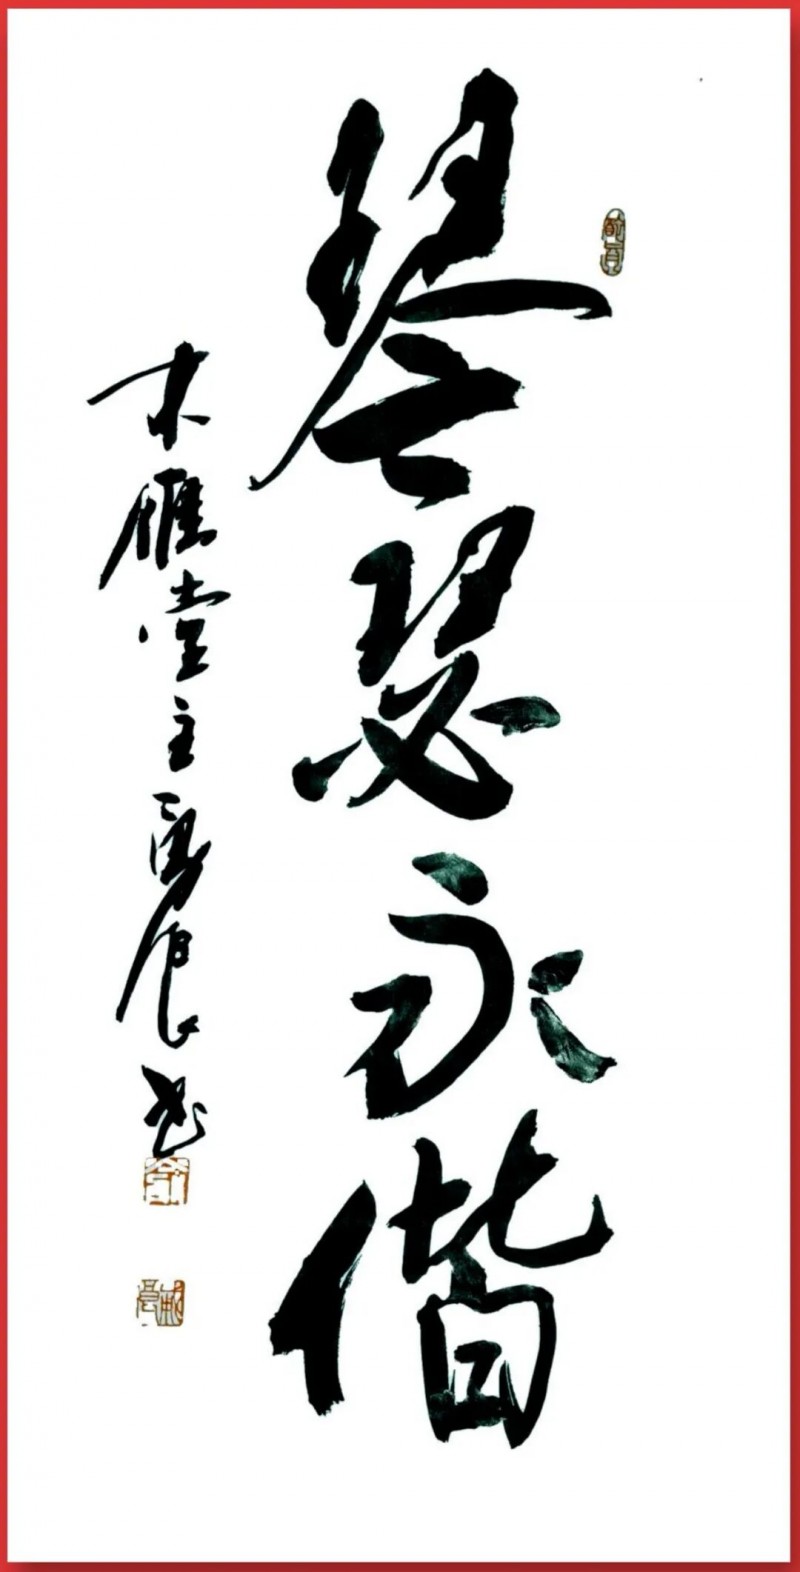 琴瑟永偕
木雁堂主
书